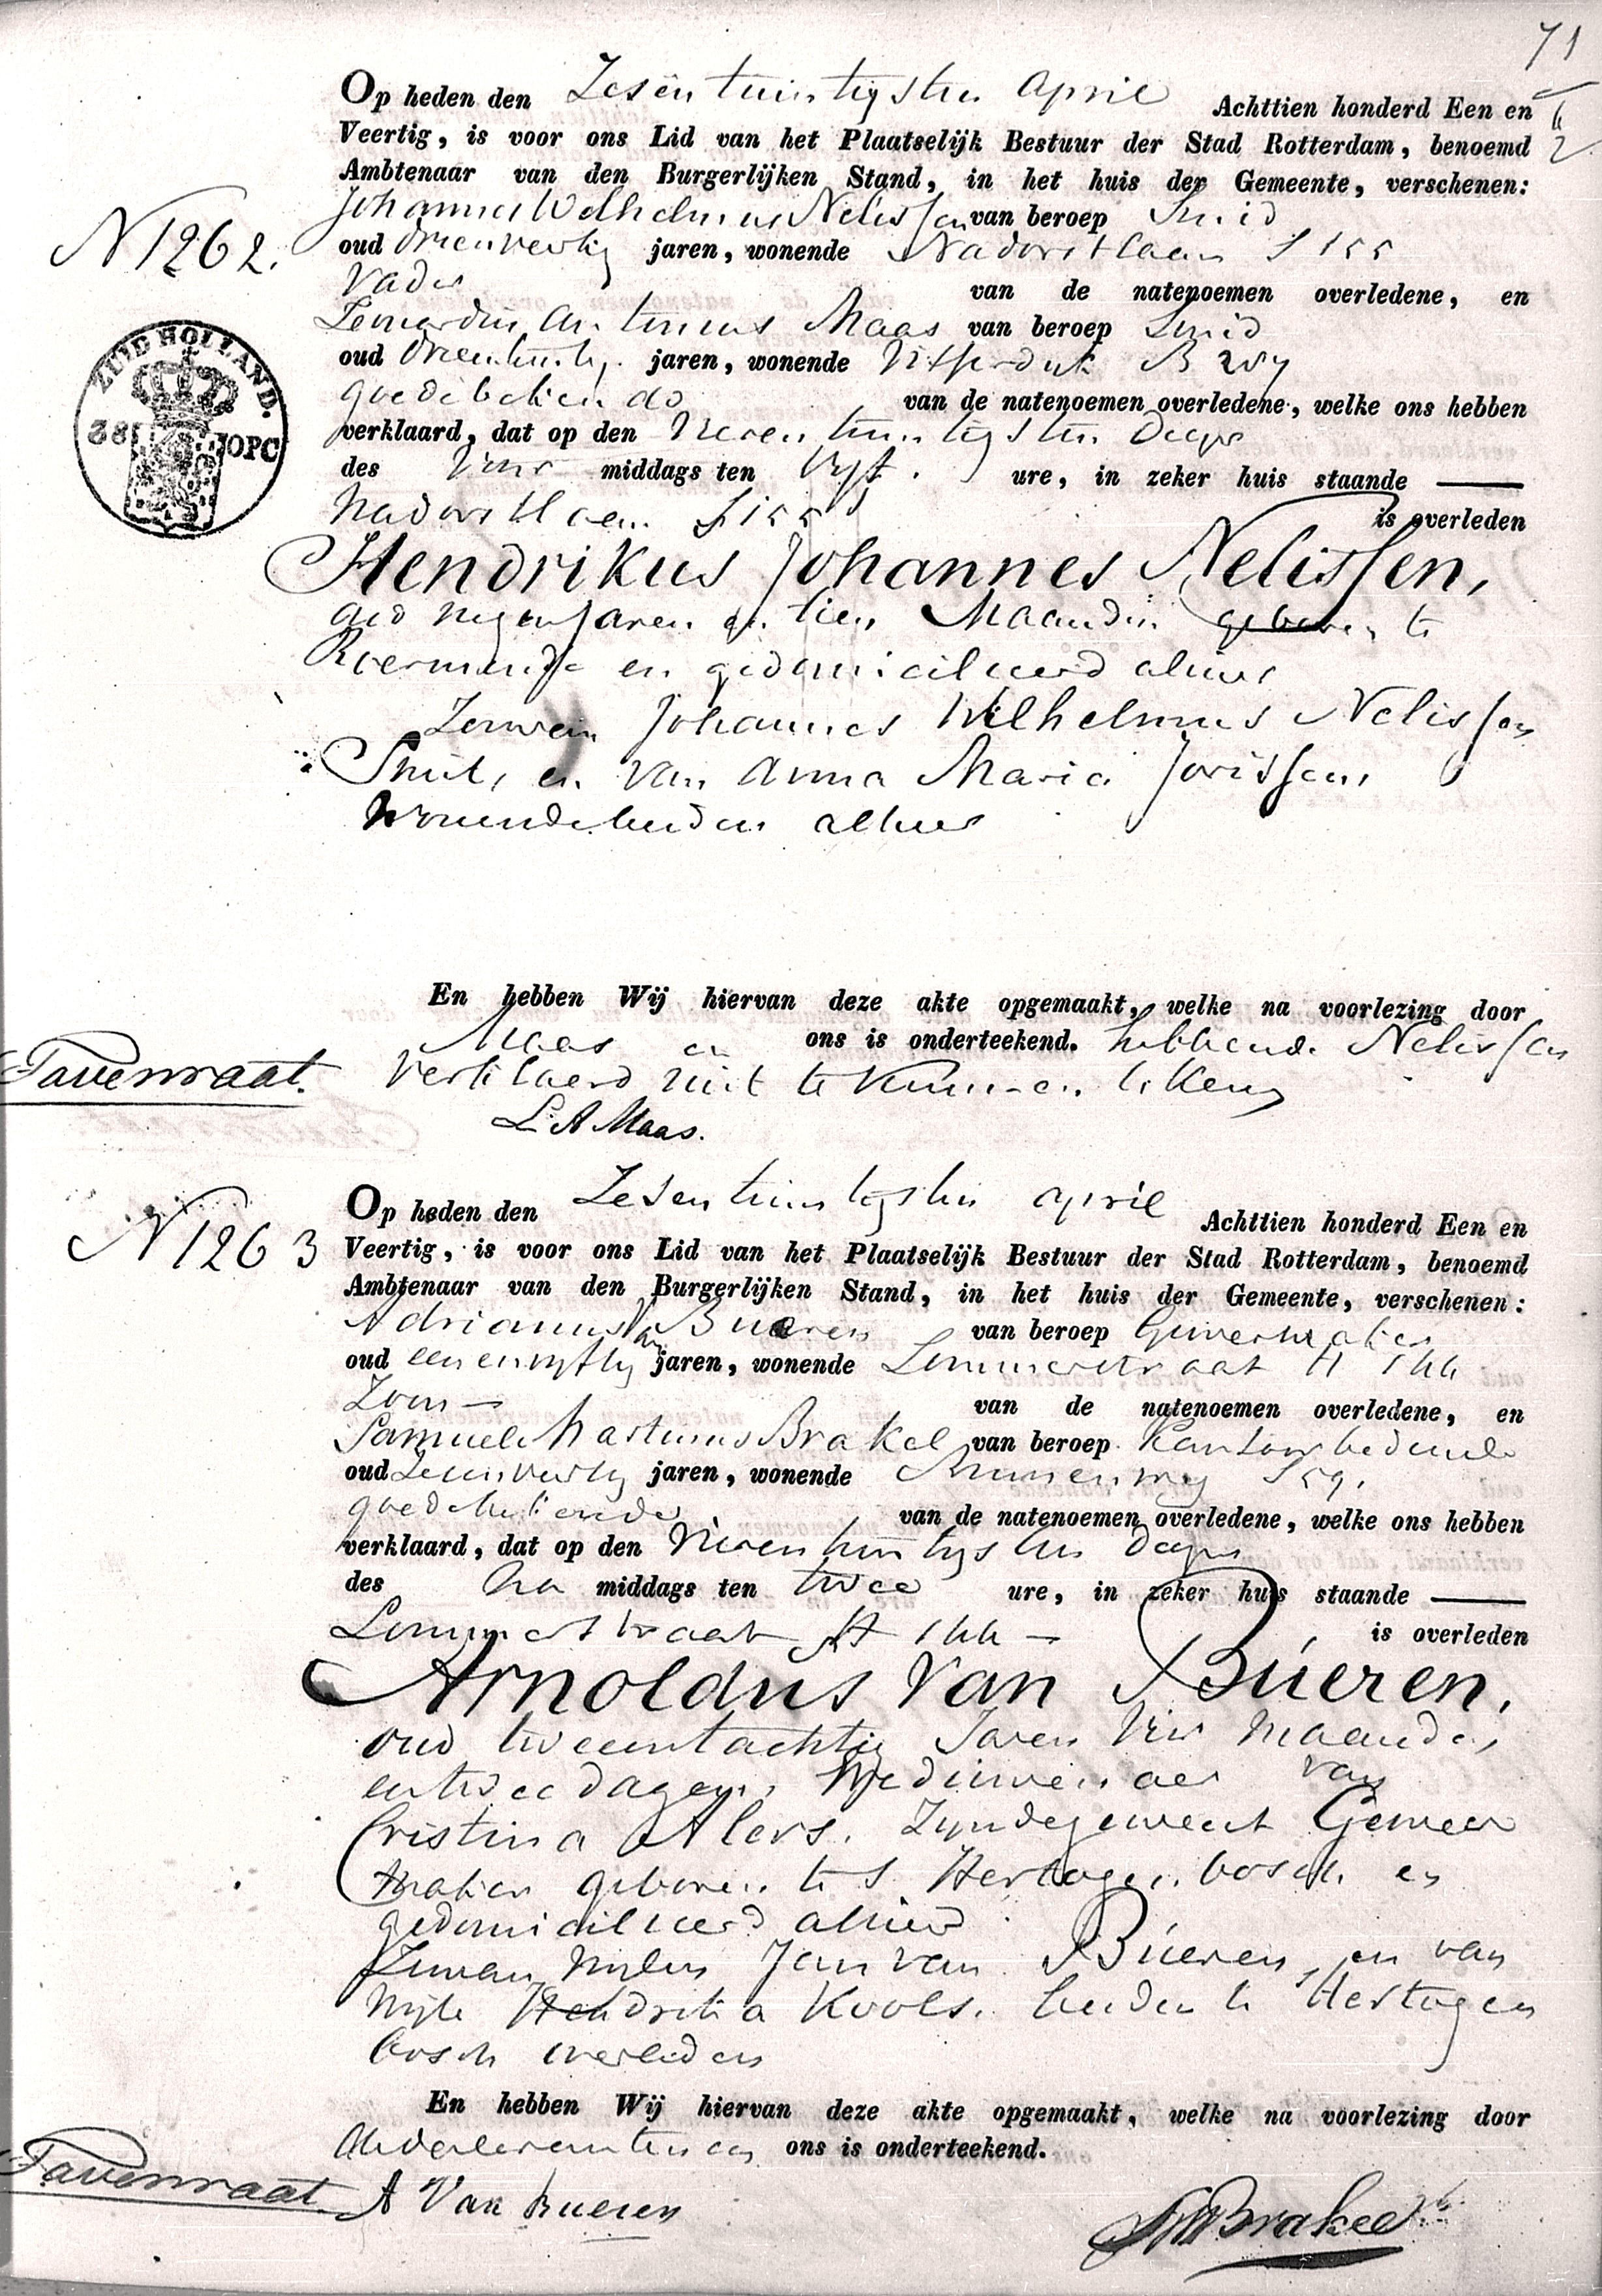 71
Op heden den Zesentwintigsten April Achttien honderd Een en
Veertig, is voor ons Lid van het Plaatselijk Bestuur der Stad Rotterdam, benoemd
Ambtenaar van den Burgerlijken Stand, in het huis der Gemeente, verschenen:
N 1262.
Johannes Wilhelmus Nelissen van beroep Smid
oud drieenveertig jaren, wonende S 155
Vader van de natenoemen overledene, en
ZUID HOLLAND.
38 OPC
Leonardus Antonius Maas van beroep Smid
oud jaren, wonende B 257
goedebekende van de natenoemen overledene, welke ons hebben
verklaard, dat op den Vierentwintigsten dezer
des Voor middags ten Vyf ure, in zeker huis staande
S 155 is overleden
Hendrikus Johannes Nelissen,
oud negen Jaren en tien Maanden geboren te
Roermonde en gedomicilieerd alhier
Zoon van Johannes Wilhelmus Nelissen
Smit, en van Anna Maria Jorissen,
Wonende beiden alhier
En hebben Wij hiervan deze akte opgemaakt, welke na voorlezing door
Maas en ons is onderteekend. hebbende Nelissen
Tavenraat.
Verklaard niet te kunnen tekenen
L A Maas.
Op heden den Zesentwintigsten april Achttien honderd Een en
N 1263
Veertig, is voor ons Lid van het Plaatselijk Bestuur der Stad Rotterdam, benoemd
Ambtenaar van den Burgerlijken Stand, in het huis der Gemeente, verschenen:
Adrianus Van Bueren van beroep Geweermaker
oud eenenvyftig jaren, wonende Lommerstraat H 166
Zoon van de natenoemen overledene, en
Samuel Martinus Brakel van beroep Kantoorbediende
oud jaren, wonende S 59.
goedebekende van de natenoemen overledene, welke ons hebben
verklaard, dat op den Vierentwintigsten dezer
des Na middags ten twee ure, in zeker huis staande
Lommerstraat H 166 is overleden
Arnoldus Van Búeren,
oud tweeentachtig Jaren Vier Maanden
en twee dagen, Weduwenaar van
Cristina Alers. Zynde geweest Geweer
maker geboren te s Hertogenbosch en
gedomicilieerd alhier
Zoon van wylen Jan van Búeren, en van
Wyle Hendrika Kools. beiden te s Hertogen
bosch overleden
En hebben Wij hiervan deze akte opgemaakt, welke na voorlezing door
de Declaranten en ons is onderteekend.
Tavenraat
A Van Bueren
SM Brakel